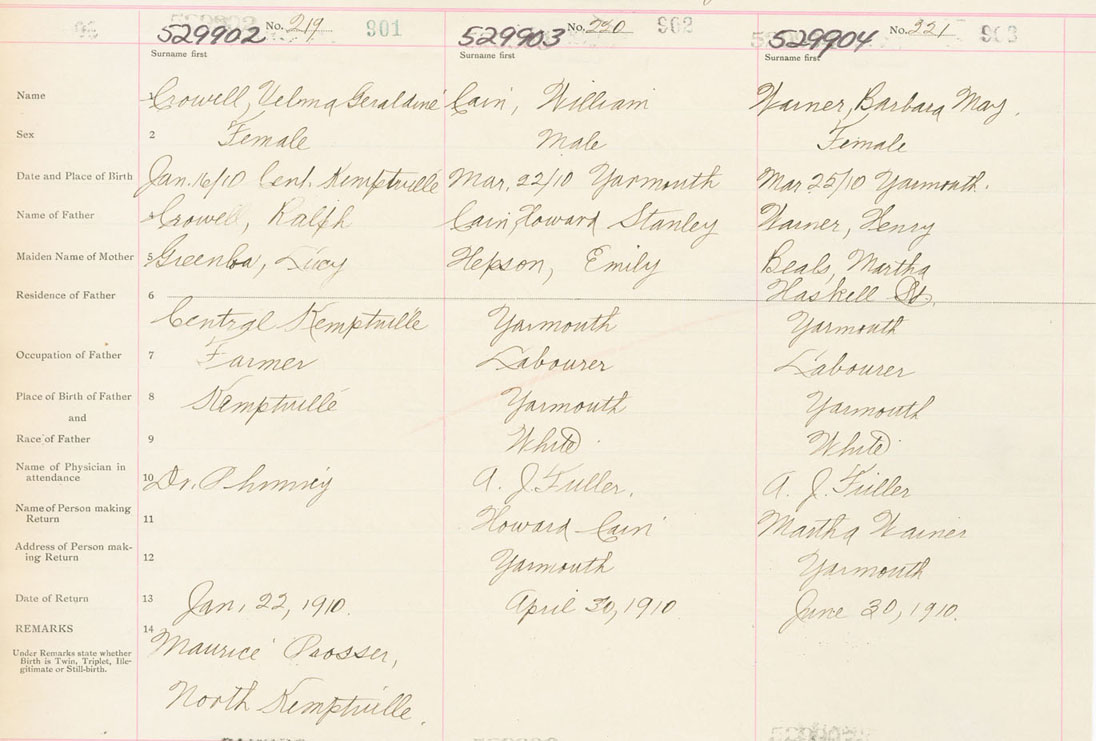 529902 No. 219 901 529903 No. 220 902 529904 No. 221 903
Surname first Surname first Surname first
Name 1 Crowell, Velma Geraldine Cain, William Warner, Barbara May.
Sex 2 Female Male Female
Date and Place of Birth Jan. 16/10 Cent. Kemptville Mar. 22/10 Yarmouth Mar 25/10 Yarmouth.
Name of Father 4 Crowell, Ralph Cain, Howard Stanley Warner, Henry
Maiden Name of Mother 5 Lucy Hepson, Emily Beals, Martha
Residence of Father 6 Haskell St.,
Central Kemptville Yarmouth Yarmouth
Occupation of Father 7 Farmer Labourer Labourer
Place of Birth of Father 8 Kemptville Yarmouth Yarmouth
and
Race of Father 9 White White
Name of Physician in
attendance 10 Dr. Phinney A. J. Fuller. A. J. Fuller
Name of Person making
Return 11 Howard Cain Martha Warner
Address of Person mak-
ing Return 12 Yarmouth Yarmouth
Date of Return 13 Jan, 22, 1910. April 30, 1910 June 30, 1910.
REMARKS 14 Maurice Prosser,
Under Remarks state whether
Birth is Twin, Triplet, Ille-
gitimate or Still-birth.
North Kemptville.